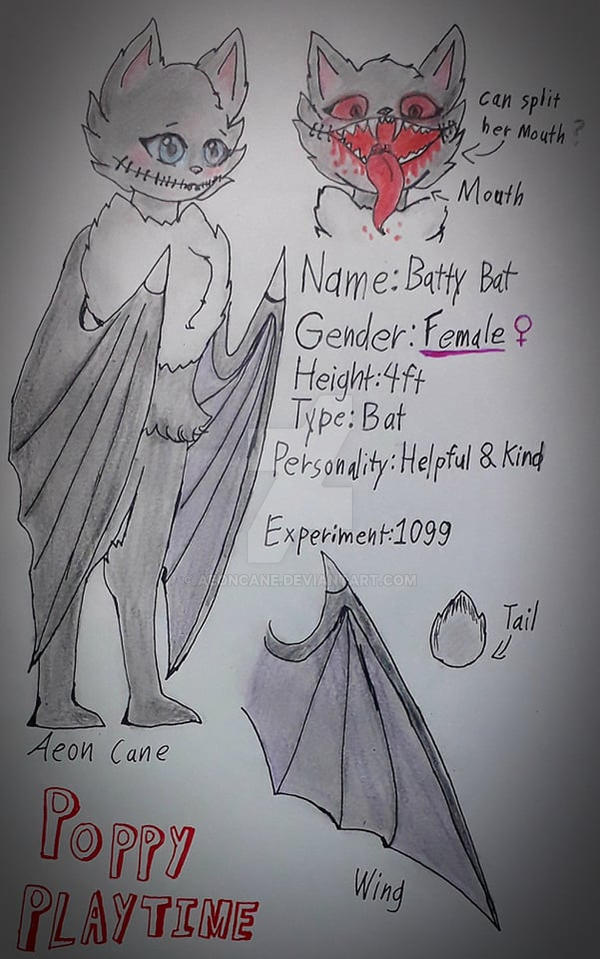 can split
her Mouth?
Mouth
Name: Batty Bat
Gender: Female ♀
Height: 4ft
Type: Bat
Personality: Helpful & Kind
Experiment: 1099
© AEONCANE.DEVIANTART.COM
Tail
Aeon Cane
POPPY
PLAYTIME
Wing